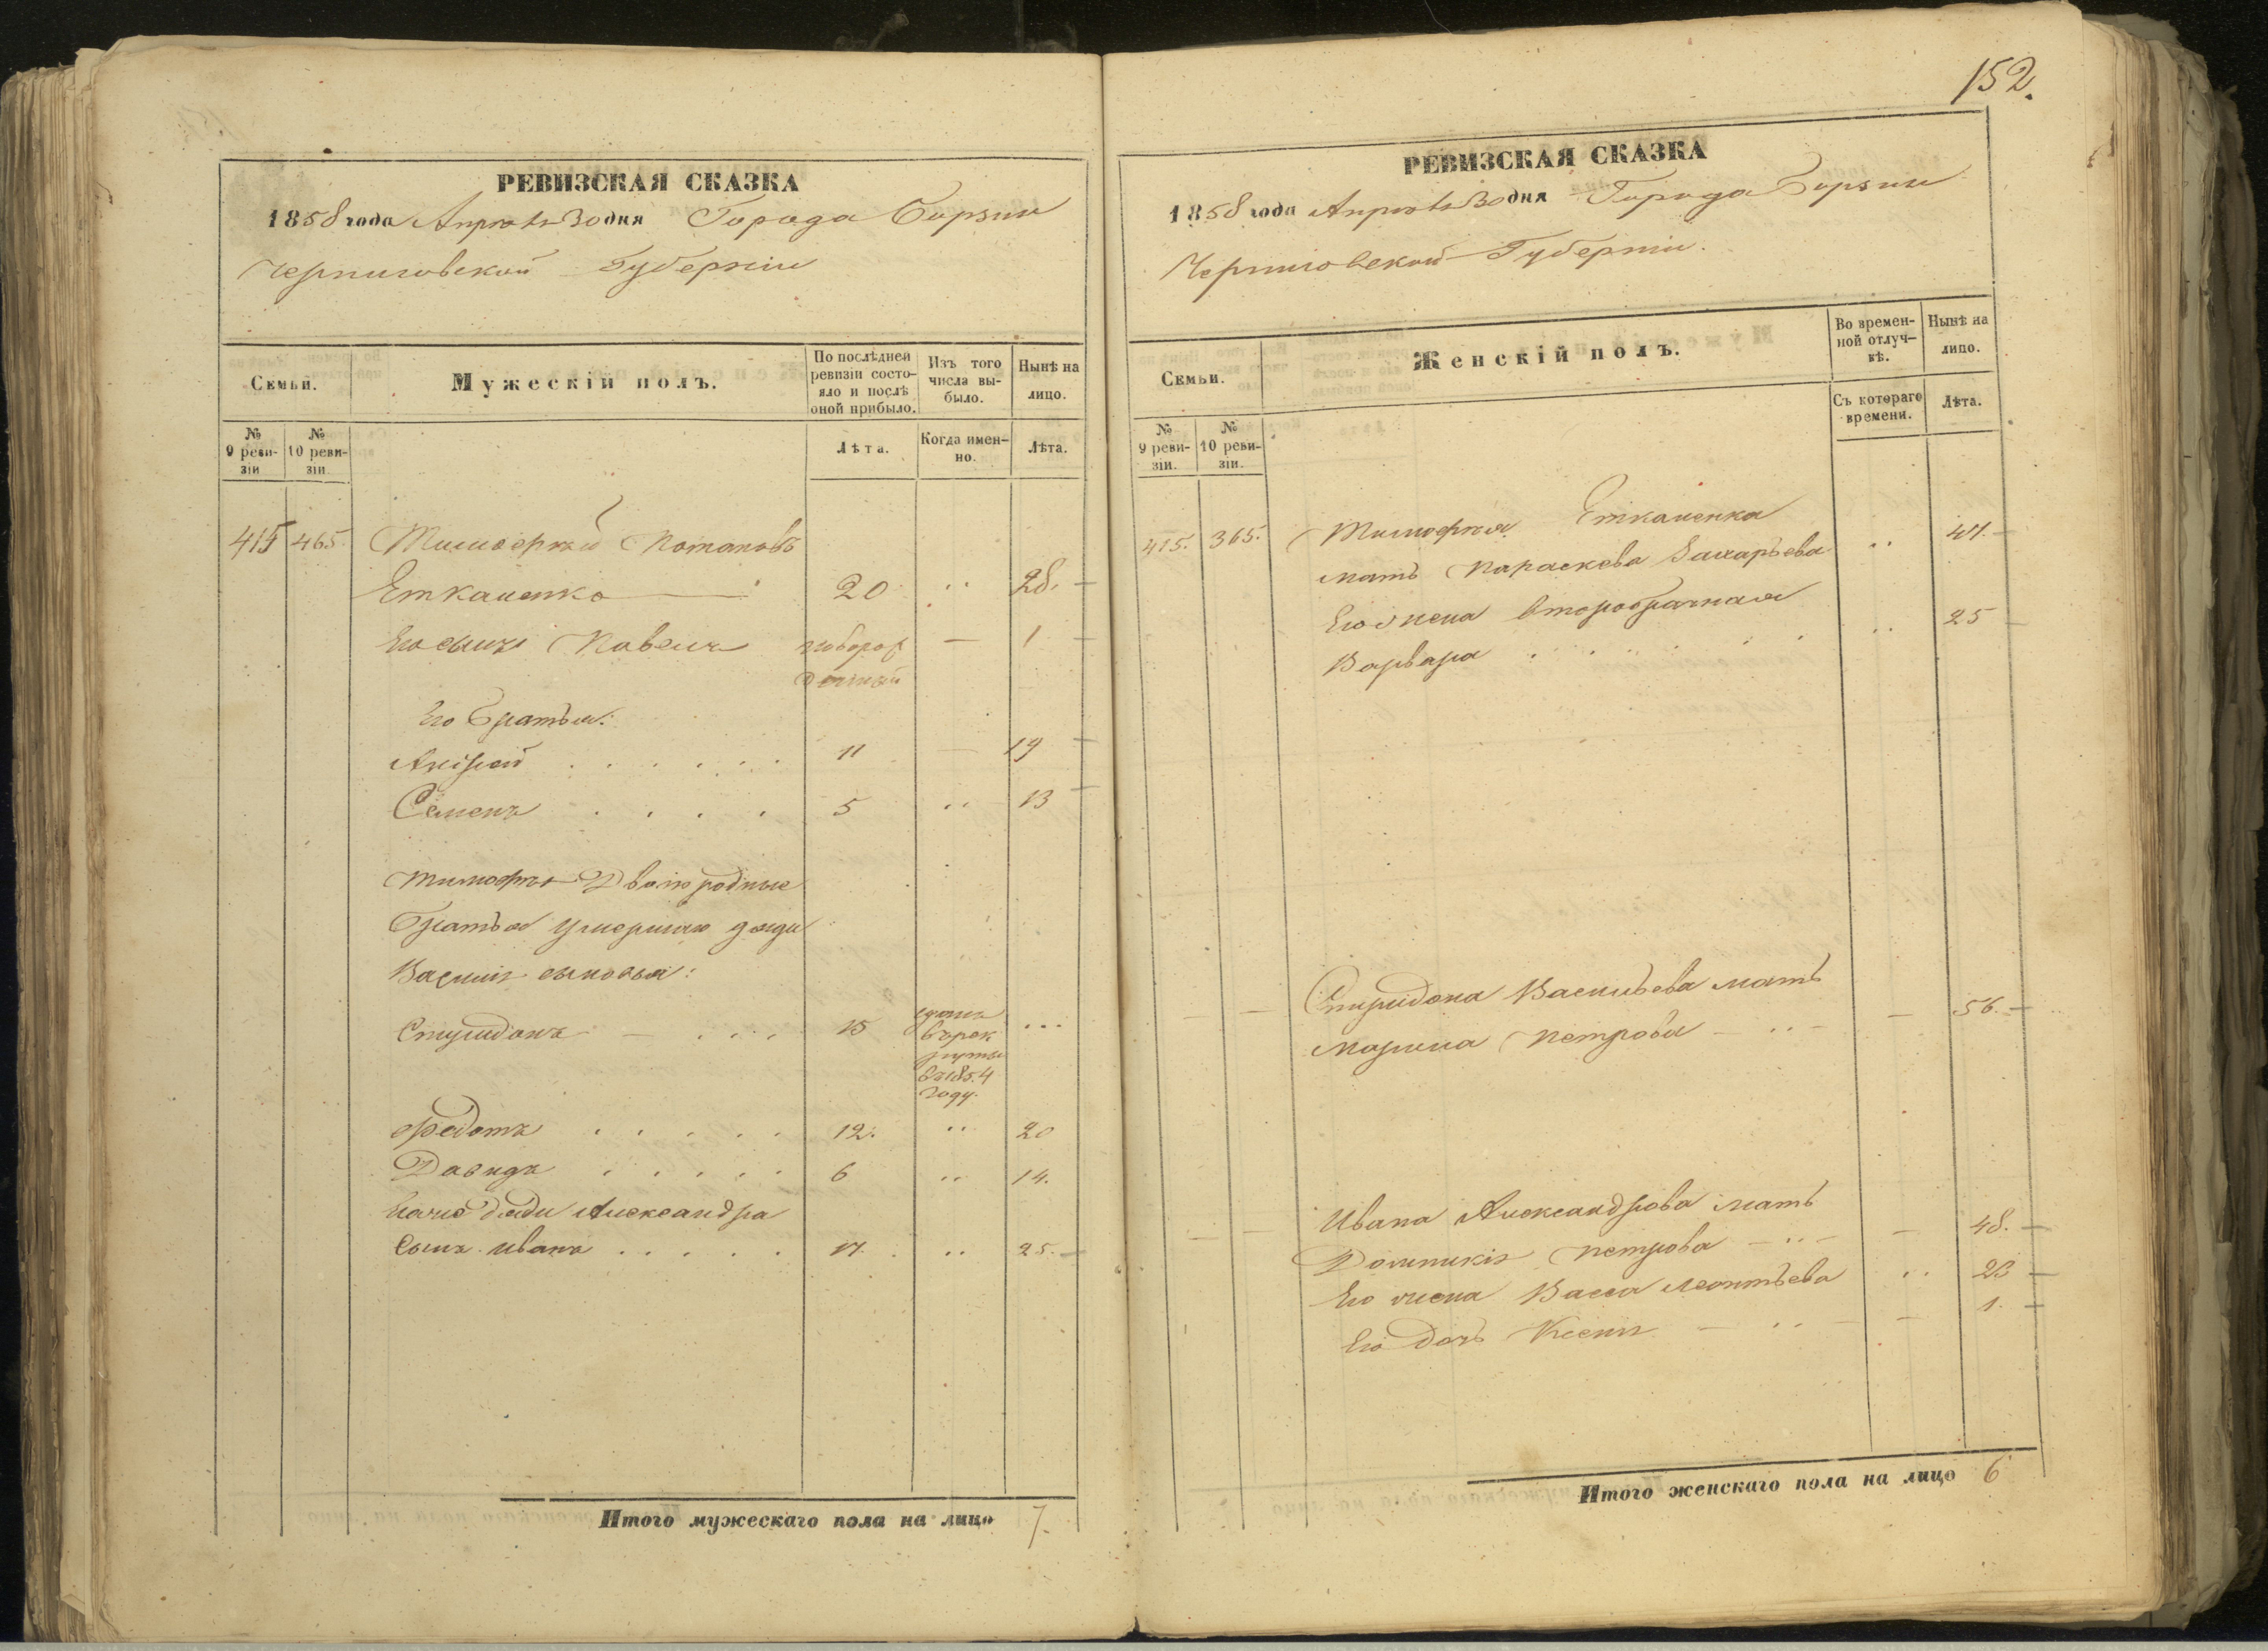 152.
РЕВИЗСКАЯ СКАЗКА
1858 года Апрѣля 30 дня Города Борзны
Черниговской Губерніи
Семьи.
Мужескій полъ.
По послѣдней ревизіи состояло и послѣ оной прибыло.
Изъ того числа выбыло.
Нынѣ на лицо.
№ 9 ревизіи
№ 10 ревизіи
Лѣта.
Когда именно.
Лѣта.
415 465. Тимофѣй Потаповъ
Еткаленко 20 28.
Его сынъ Павелъ новорож 1
денный
Его братья:
Андрей 11 19
Семенъ 5 13
Тимофѣя Двоюродные
Братья умершаго дяди
Василія сыновья:
Спиридонъ 15 въ рек
руты
въ 1854
году.
Федотъ 12. 20
Давидъ 6 14.
дяди Александра
Сынъ Иванъ 17. 25.
Итого мужескаго пола на лицо 7.
РЕВИЗСКАЯ СКАЗКА
1858 года Апрѣля 30 дня Города Борзны
Черниговской Губерніи.
Семьи.
Женскій полъ.
Во временной отлучкѣ.
Нынѣ на лицо.
№ 9 ревизіи.
№ 10 ревизіи.
Съ котораго времени.
Лѣта.
415. 365. Тимофѣя Еткаленка
мать Параскева Захарьева 47.
Его жена второбрачная
Варвара 25
Спиридона Васильева мать
Марина Петрова 56.
Ивана Александрова мать
Домникія Петрова 48.
Его жена Васса Леонтьева 23
Его дочь Ксенія 1.
Итого женскаго пола на лицо 6